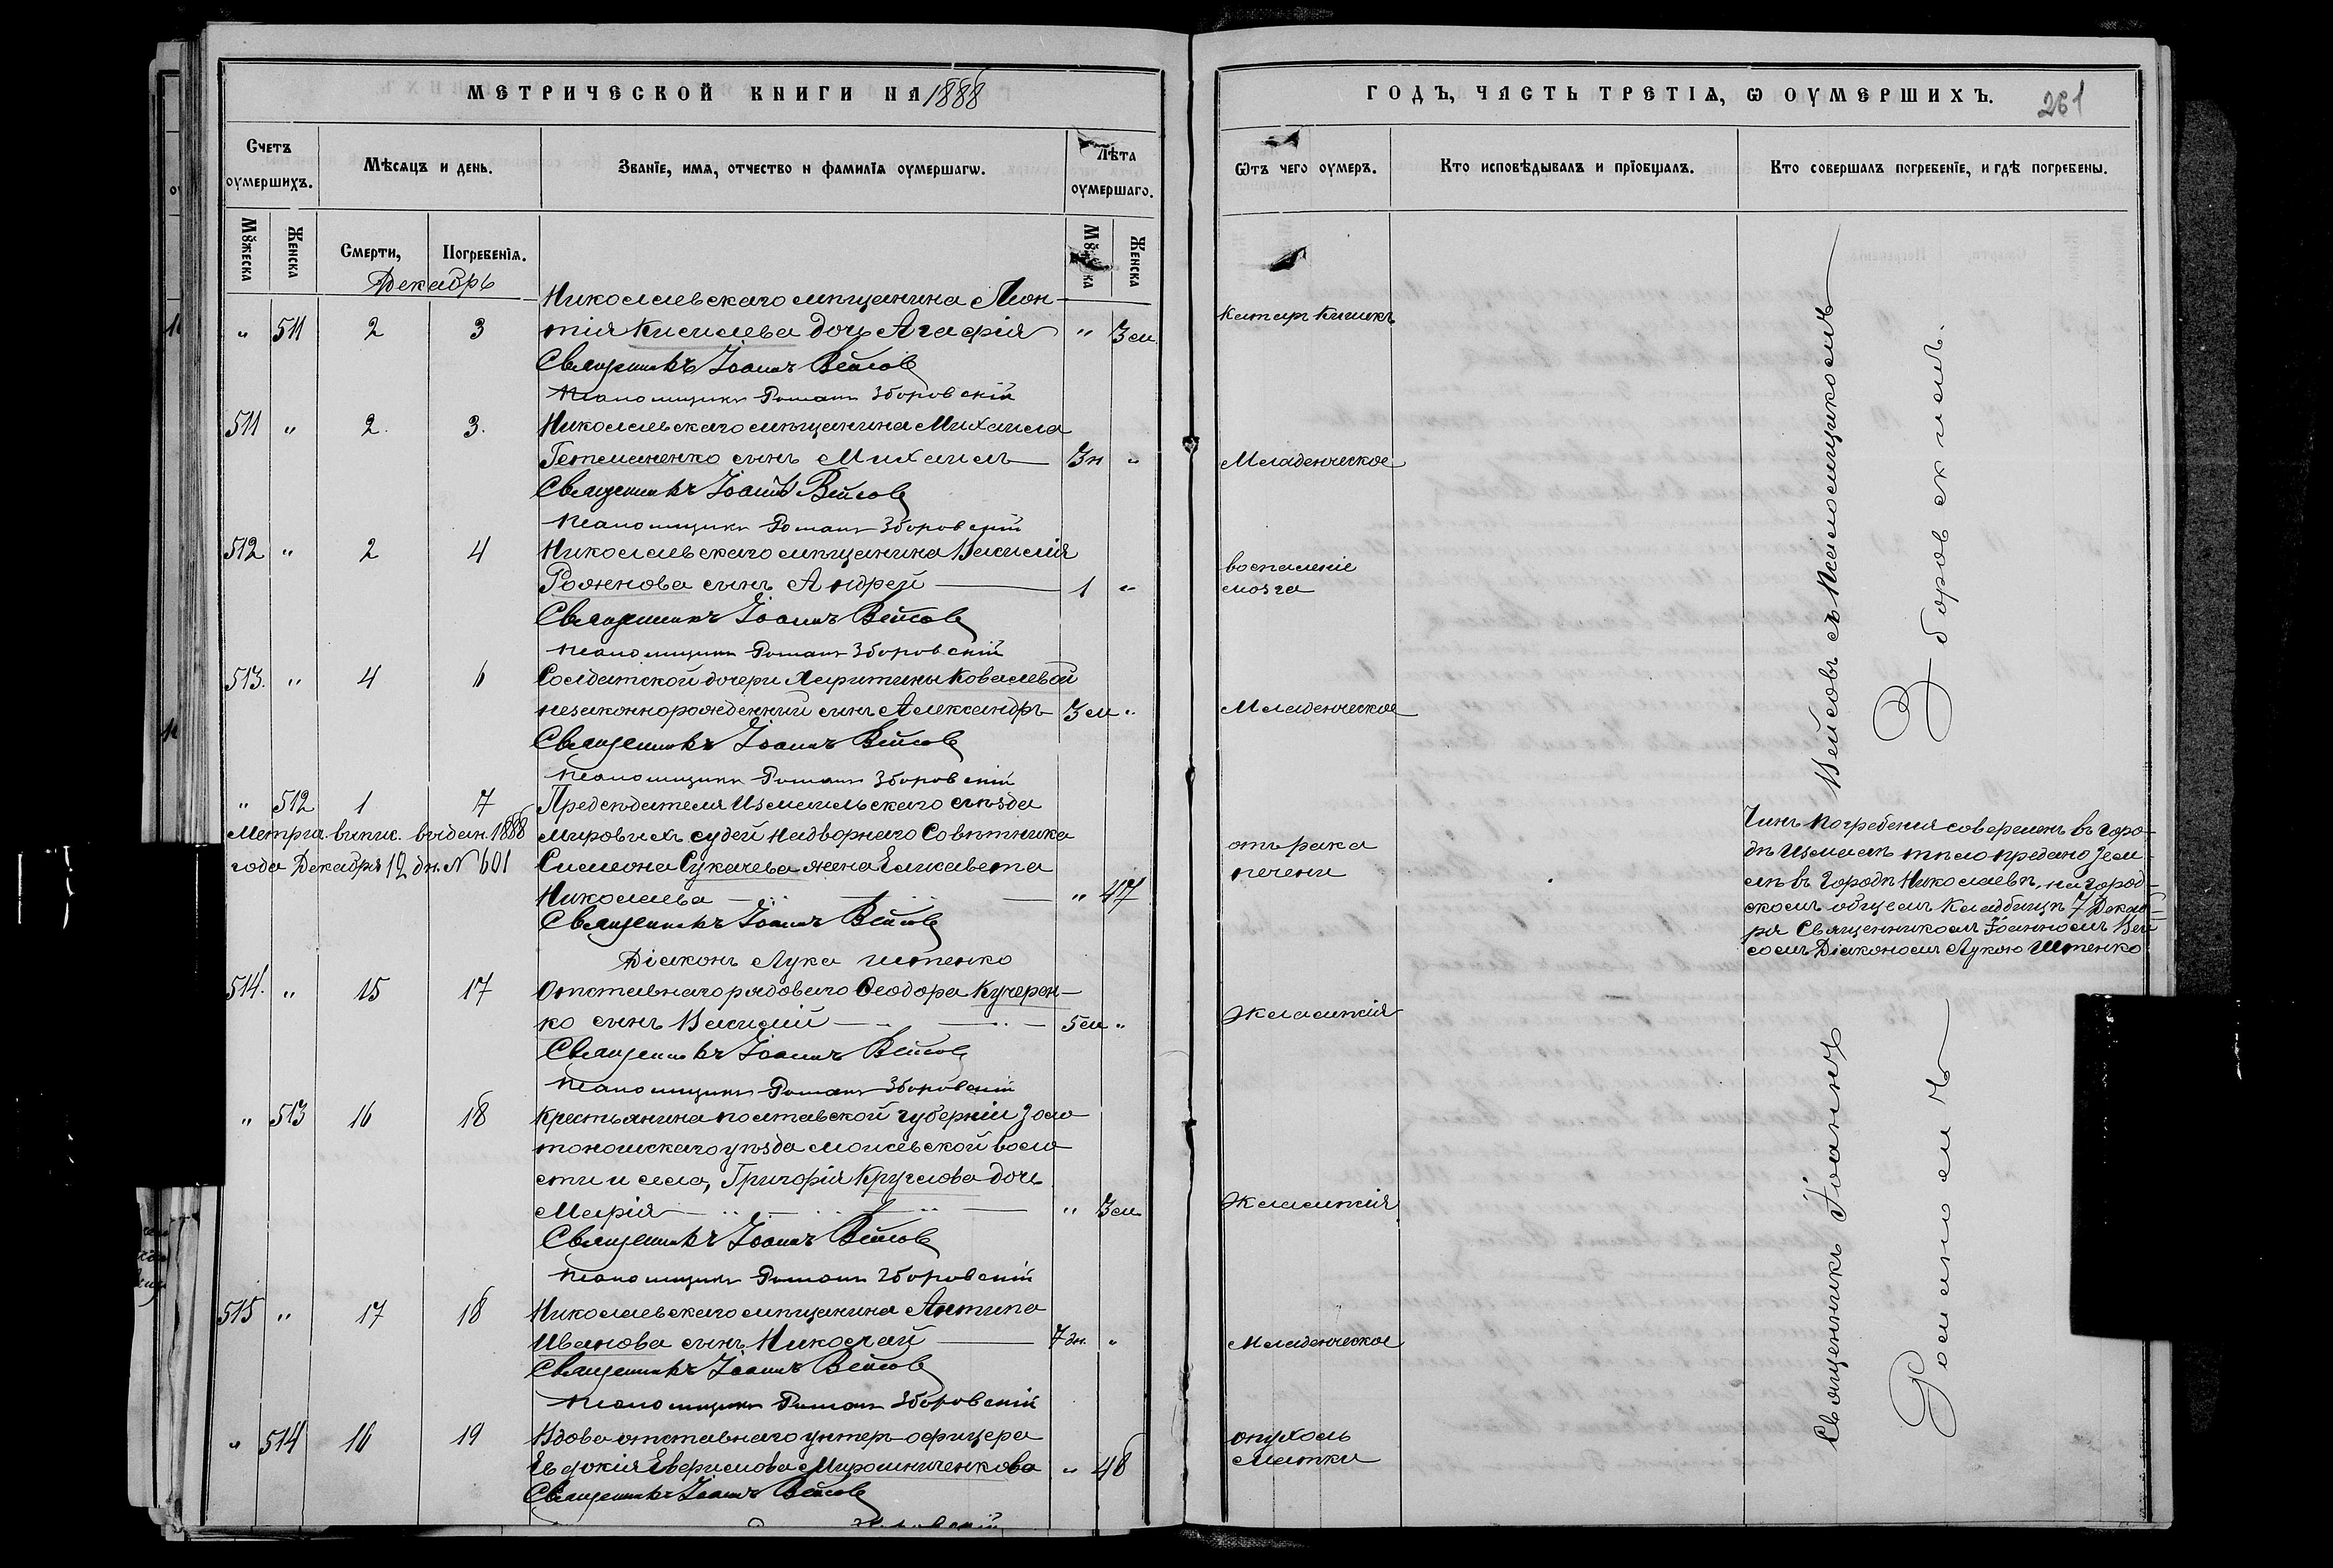 МЕТРИЧЕСКОЙ КНИГИ НА 1888
Счетъ оумершихъ.
Мѣсяцъ и день.
Званїе, имя, отчество и фамилїя оумершагw.
Лѣта оумершаго.
Мꙋжеска
Женска
Смерти,
Погребенїя.
Женска
Декабрь
Николаевскаго мѣщанина Леон-
" 511 2 3 тія Киселева дочь Агафія " 3 м.
Священникъ Іоаннъ Вейсовъ
Псаломщикъ Романъ Зборовскій
511 " 2. 3. Николаевскаго мѣщанина Михаила
Гетманенко сынъ Михаилъ 3 н "
Священникъ Іоаннъ Вейсовъ
Псаломщикъ Романъ Зборовскій
512 " 2 4 Николаевскаго мѣщанина Василія
Роженова сынъ Андрей 1 "
Священникъ Іоаннъ Вейсовъ
Псаломщикъ Романъ Зборовскій
513. " 4 6 Солдатской дочери Харитины Ковалевой
незаконнорожденный сынъ Александръ 3 м "
Священникъ Іоаннъ Вейсовъ
Псаломщикъ Романъ Зборовскій
" 512 1 7 Предсѣдателя Измаильскаго съѣзда
Метрич. выпис. выдан. 1888 мировыхъ судей Надворнаго Совѣтника
года Декабря 12 дн. № 601 Симеона Сукачева жена Елисавета
Николаева " 47
Священникъ Іоаннъ Вейсовъ
Діаконъ Лука Иттенко
514. " 15 17 Отставнаго рядоваго Ѳеодора Кучерен-
ко сынъ Василій 5 м "
Священникъ Іоаннъ Вейсовъ
Псаломщикъ Романъ Зборовскій
" 513 16 18 Крестьянина полтавской губерніи золо
тоношскаго уѣзда моисевской воло
сти и села, Григорія Круглова дочь
Марія " 3 м
Священникъ Іоаннъ Вейсовъ
Псаломщикъ Романъ Зборовскій
515 " 17 18 Николаевскаго мѣщанина Антипа
Иванова сынъ Николай 7 дн. "
Священникъ Іоаннъ Вейсовъ
Псаломщикъ Романъ Зборовскій
" 514 16 19 Вдова отставнаго унтеръ-офицера
Евдокія Ефимова Мирошниченкова " 48
Священникъ Іоаннъ Вейсовъ
ГОДЪ, ЧАСТЬ ТРЕТІЯ, Ѡ ОУМЕРШИХЪ.
261
Ѿтъ чего оумеръ.
Кто исповѣдывалъ и прїобщалъ.
Кто совершалъ погребенїе, и гдѣ погребены.
Катаръ Кишекъ
Младенческое
воспаленіе
мозга
Младенческое
отъ рака
печени
Эклампсія
Эклампсія
Младенческое
опухоль
Матки
Чинъ погребенія совершенъ въ горо-
дѣ Измаилѣ тѣло предано зем
лѣ въ Городѣ Николаевѣ, на город-
скомъ общемъ кладбищѣ 7 Декаб-
ря Священникомъ Іоанномъ Вей
сомъ Діакономъ Лукою Иттенко
Священникъ Іоаннъ
Вейсовъ съ Псаломщикомъ
Романомъ
Зборовскимъ.